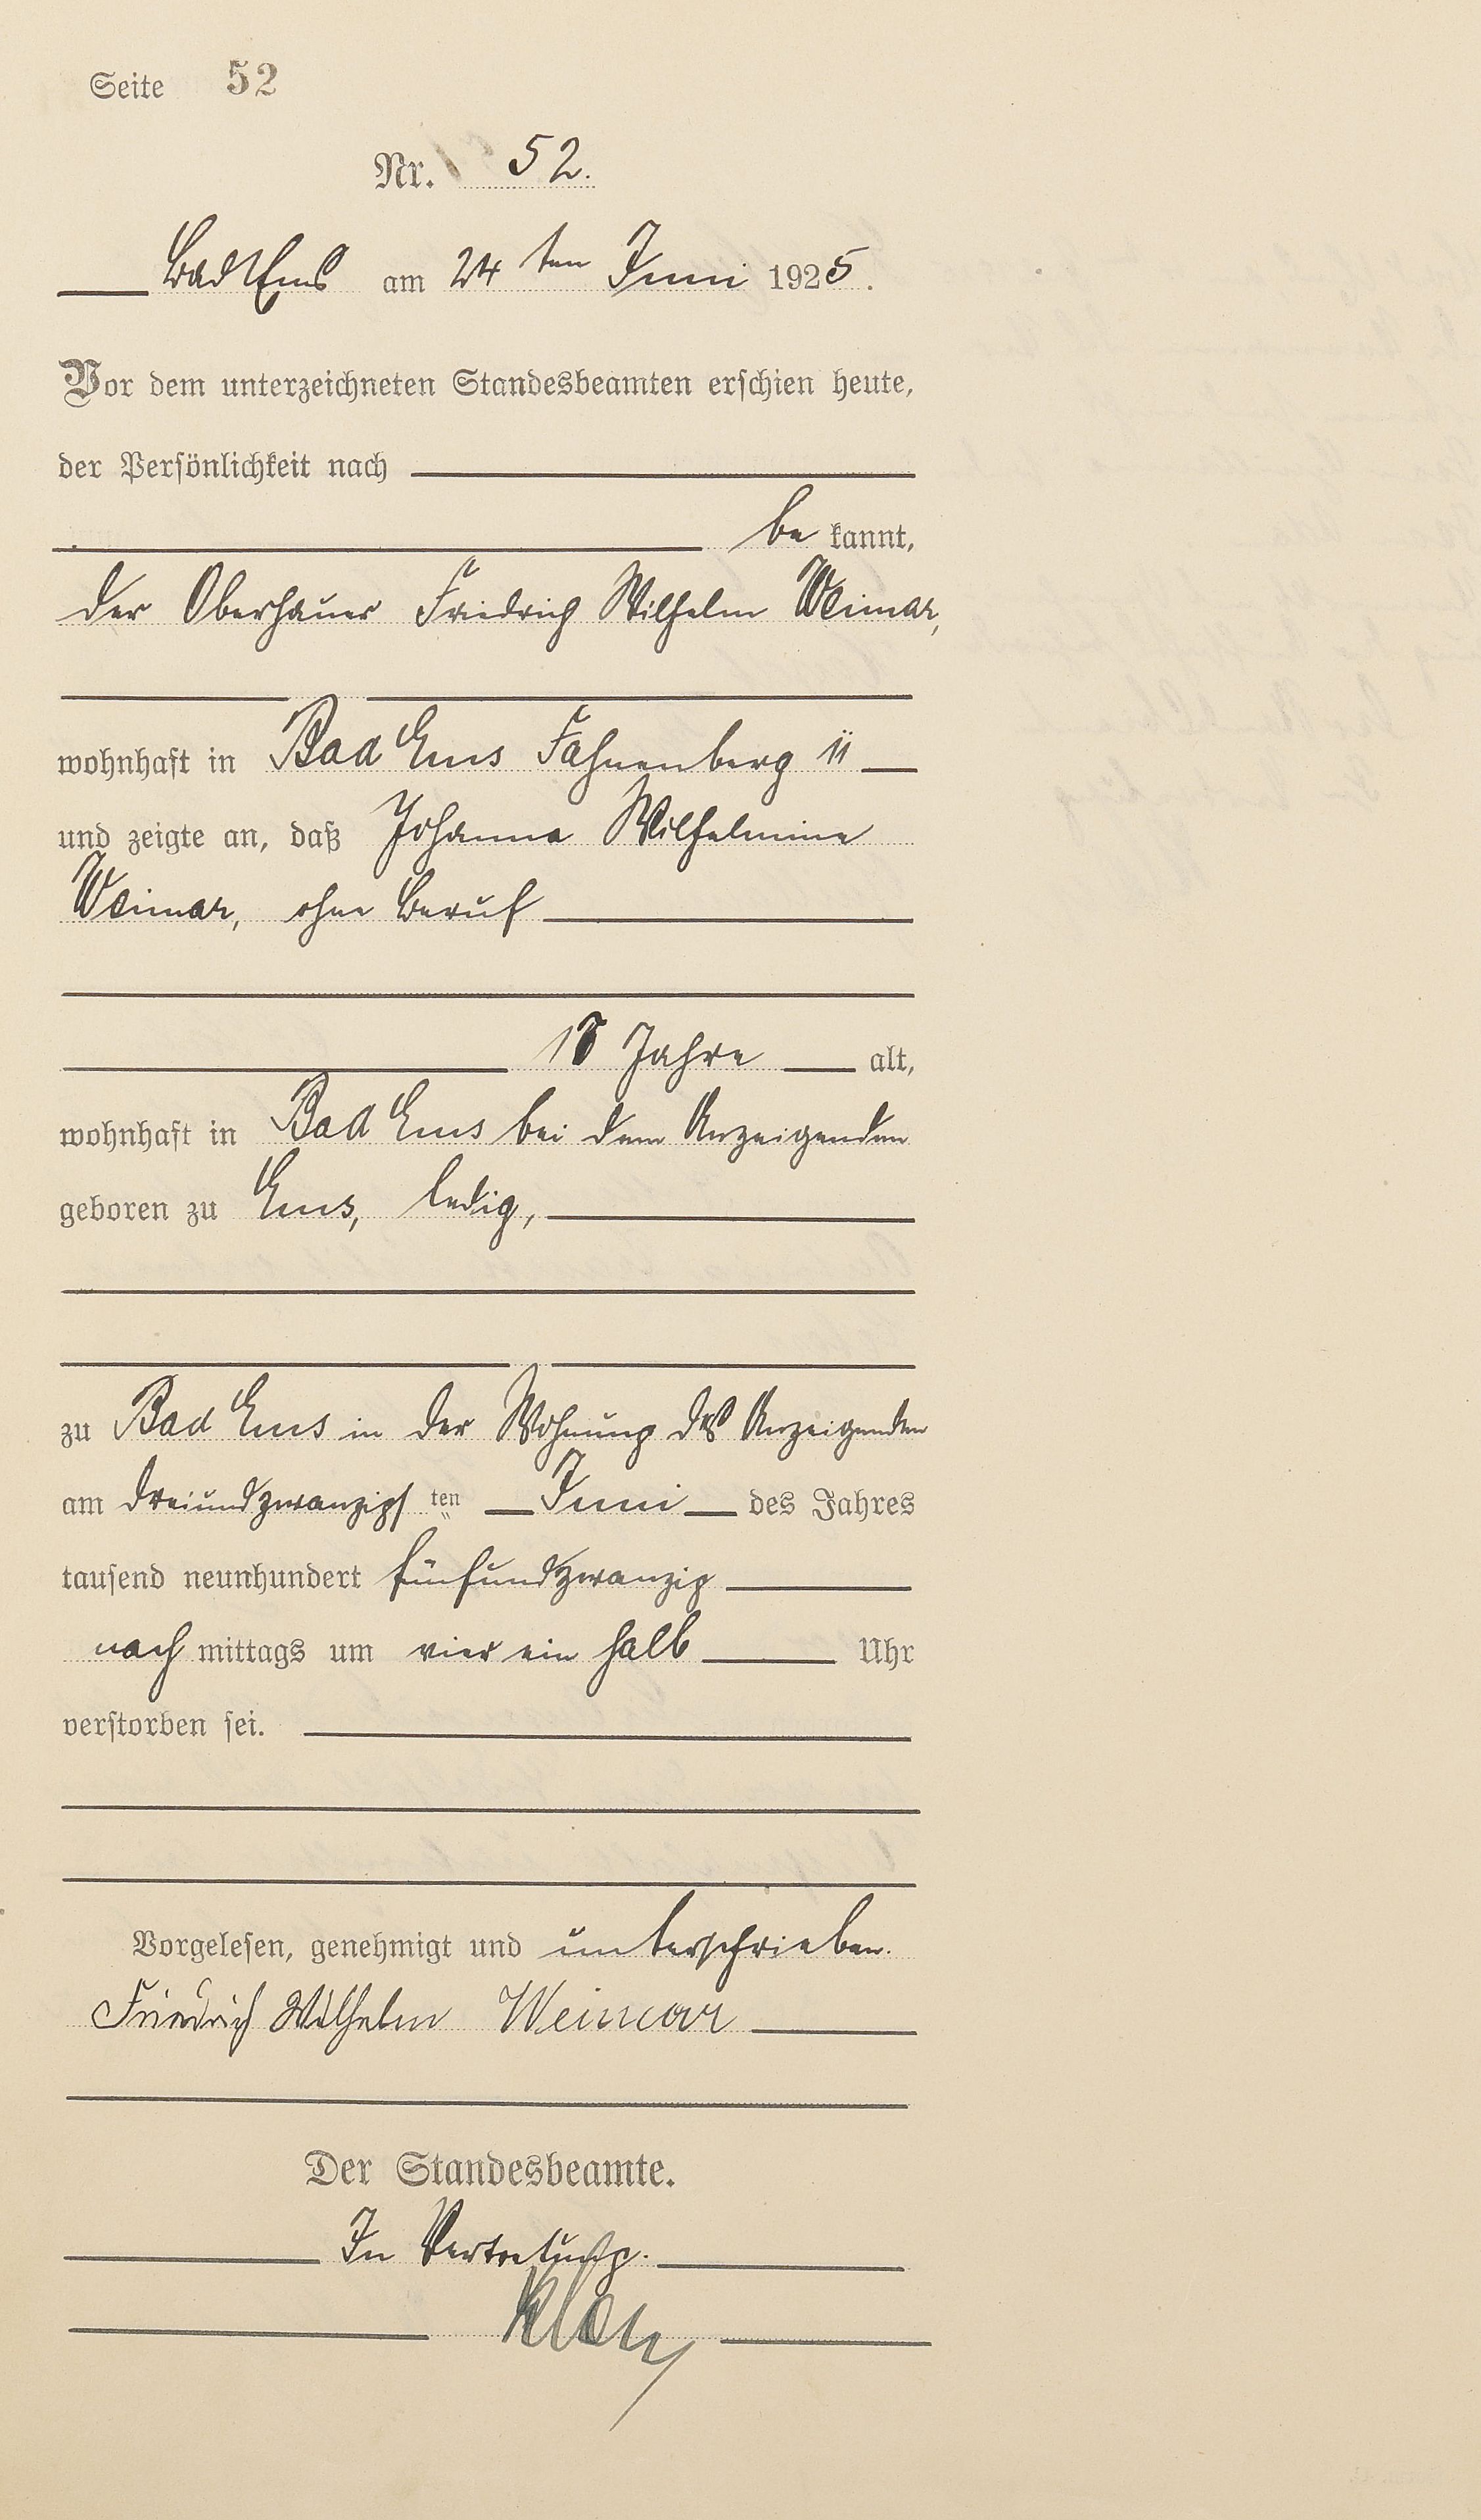 Seite 52
Nr. 52.
Bad Ems am 24ten Juni 1925.
Vor dem unterzeichneten Standesbeamten erschien heute,
der Persönlichkeit nach
be kannt,
der Oberhauer Friedrich Wilhelm Weimar,
wohnhaft in Bad Ems Fahnenberg 11
und zeigte an, daß Johanna Wilhelmine
Weimar, ohne Beruf
Jahre alt,
wohnhaft in Bad Ems bei dem Anzeigenden
geboren zu Ems, ledig,
zu Bad Ems in der Wohnung des Anzeigenden
am dreiundzwanzigsten Juni des Jahres
tausend neunhundert fünfundzwanzig
nach mittags um vier ein halb Uhr
verstorben sei.
Vorgelesen, genehmigt und unterschrieben.
Friedrich Wilhelm Weimar
Der Standesbeamte.
In Vertretung.